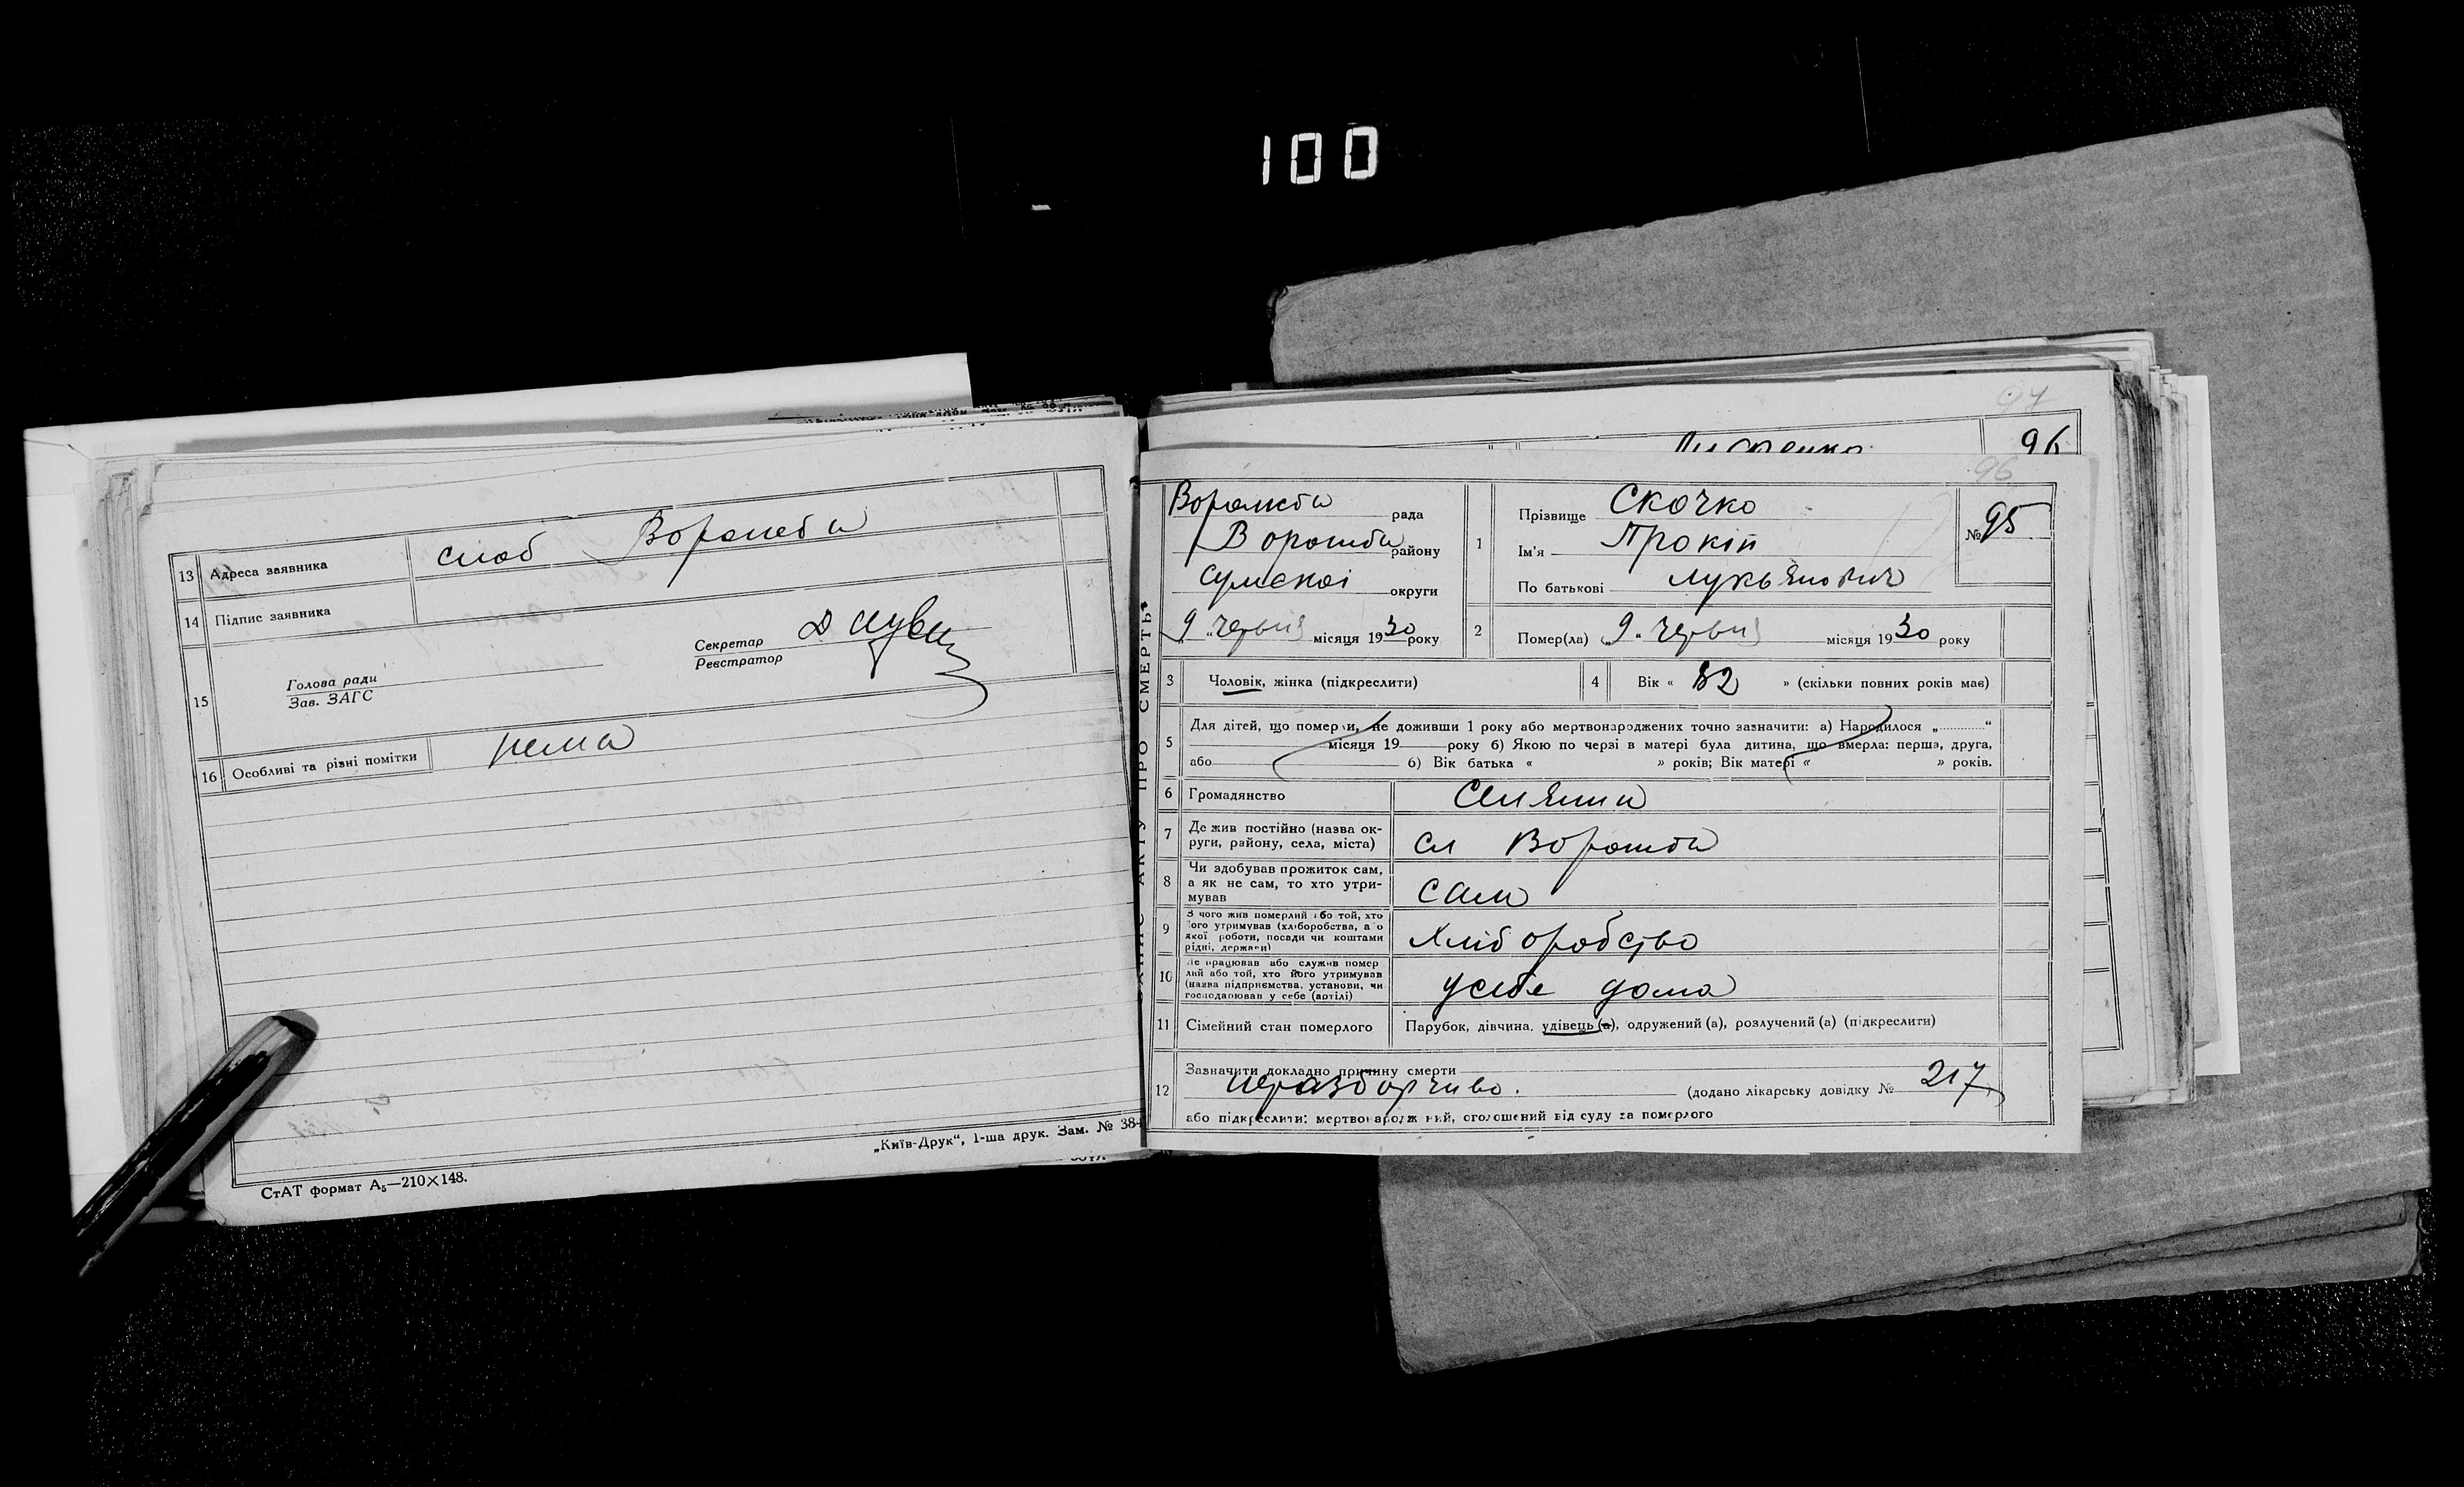 100
13 Адреса заявника слоб Ворожба
14 Підпис заявника
15 Голова ради
Зав. ЗАГС
Секретар
Реєстратор
16 Особливі та різні помітки нема
„Київ-Друк“, 1-ша друк. Зам. № 38
СтАТ формат А₅—210×148.
97
96
96
АКТУ ПРО СМЕРТЬ
Ворожба рада
Ворожба району
Сумскої округи
9 „червня місяця 1930 року
1 Прізвище Скочко
Ім'я Прокіп
По батькові Лукьянович
№ 95
2 Помер(ла) 9 „ червня місяця 1930 року
3 Чоловік, жінка (підкреслити)
4 Вік « 82 » (скільки повних років має)
5 Для дітей, що померли, не доживши 1 року або мертвонароджених точно зазначити: а) Народилося „ “
місяця 19 року б) Якою по черзі в матері була дитина, що вмерла: перша, друга,
або б) Вік батька « » років; Вік матері « » років.
6 Громадянство Селянин
7 Де жив постійно (назва ок-
руги, району, села, міста) сл Ворожба
8 Чи здобував прожиток сам,
а як не сам, то хто утри-
мував сам
9 З чого жив померлий або той, хто
його утримував (хліборобства, або
якої роботи, посади чи коштами
рідні, держави) Хліборобство
10 Де працював або служив помер
лий або той, хто його утримував
(назва підприємства, установи, чи
господарював у себе (артілі) у себе дома
11 Сімейний стан померлого Парубок, дівчина, удівець (а), одружений (а), розлучений (а) (підкреслити)
12 Зазначити докладно причину смерти
неразборчиво. (додано лікарську довідку № 217
або підкреслити: мертвонароджений, оголошений від суду за померлого